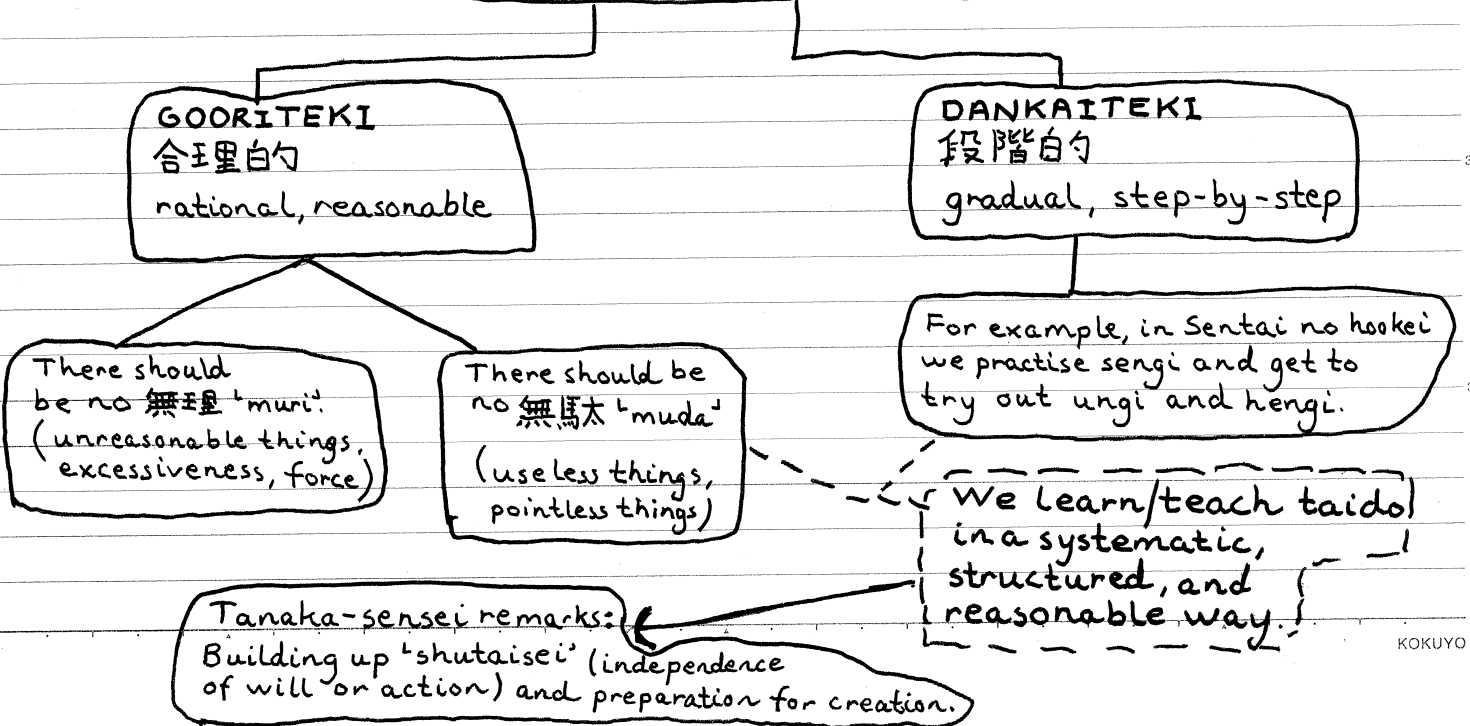 GOORITEKI
合理的
rational, reasonable
DANKAITEKI
段階的
gradual, step-by-step
There should
be no 無理 「muri」.
(unreasonable things,
excessiveness, force)
There should be
no 無駄 「muda」
(useless things,
pointless things)
For example, in Sentai no hookei
we practise sengi and get to
try out ungi and hengi.
We learn/teach taido
in a systematic,
structured, and
reasonable way.
Tanaka-sensei remarks:
Building up 「shutaisei」 (independence
of will or action) and preparation for creation.
KOKUYO